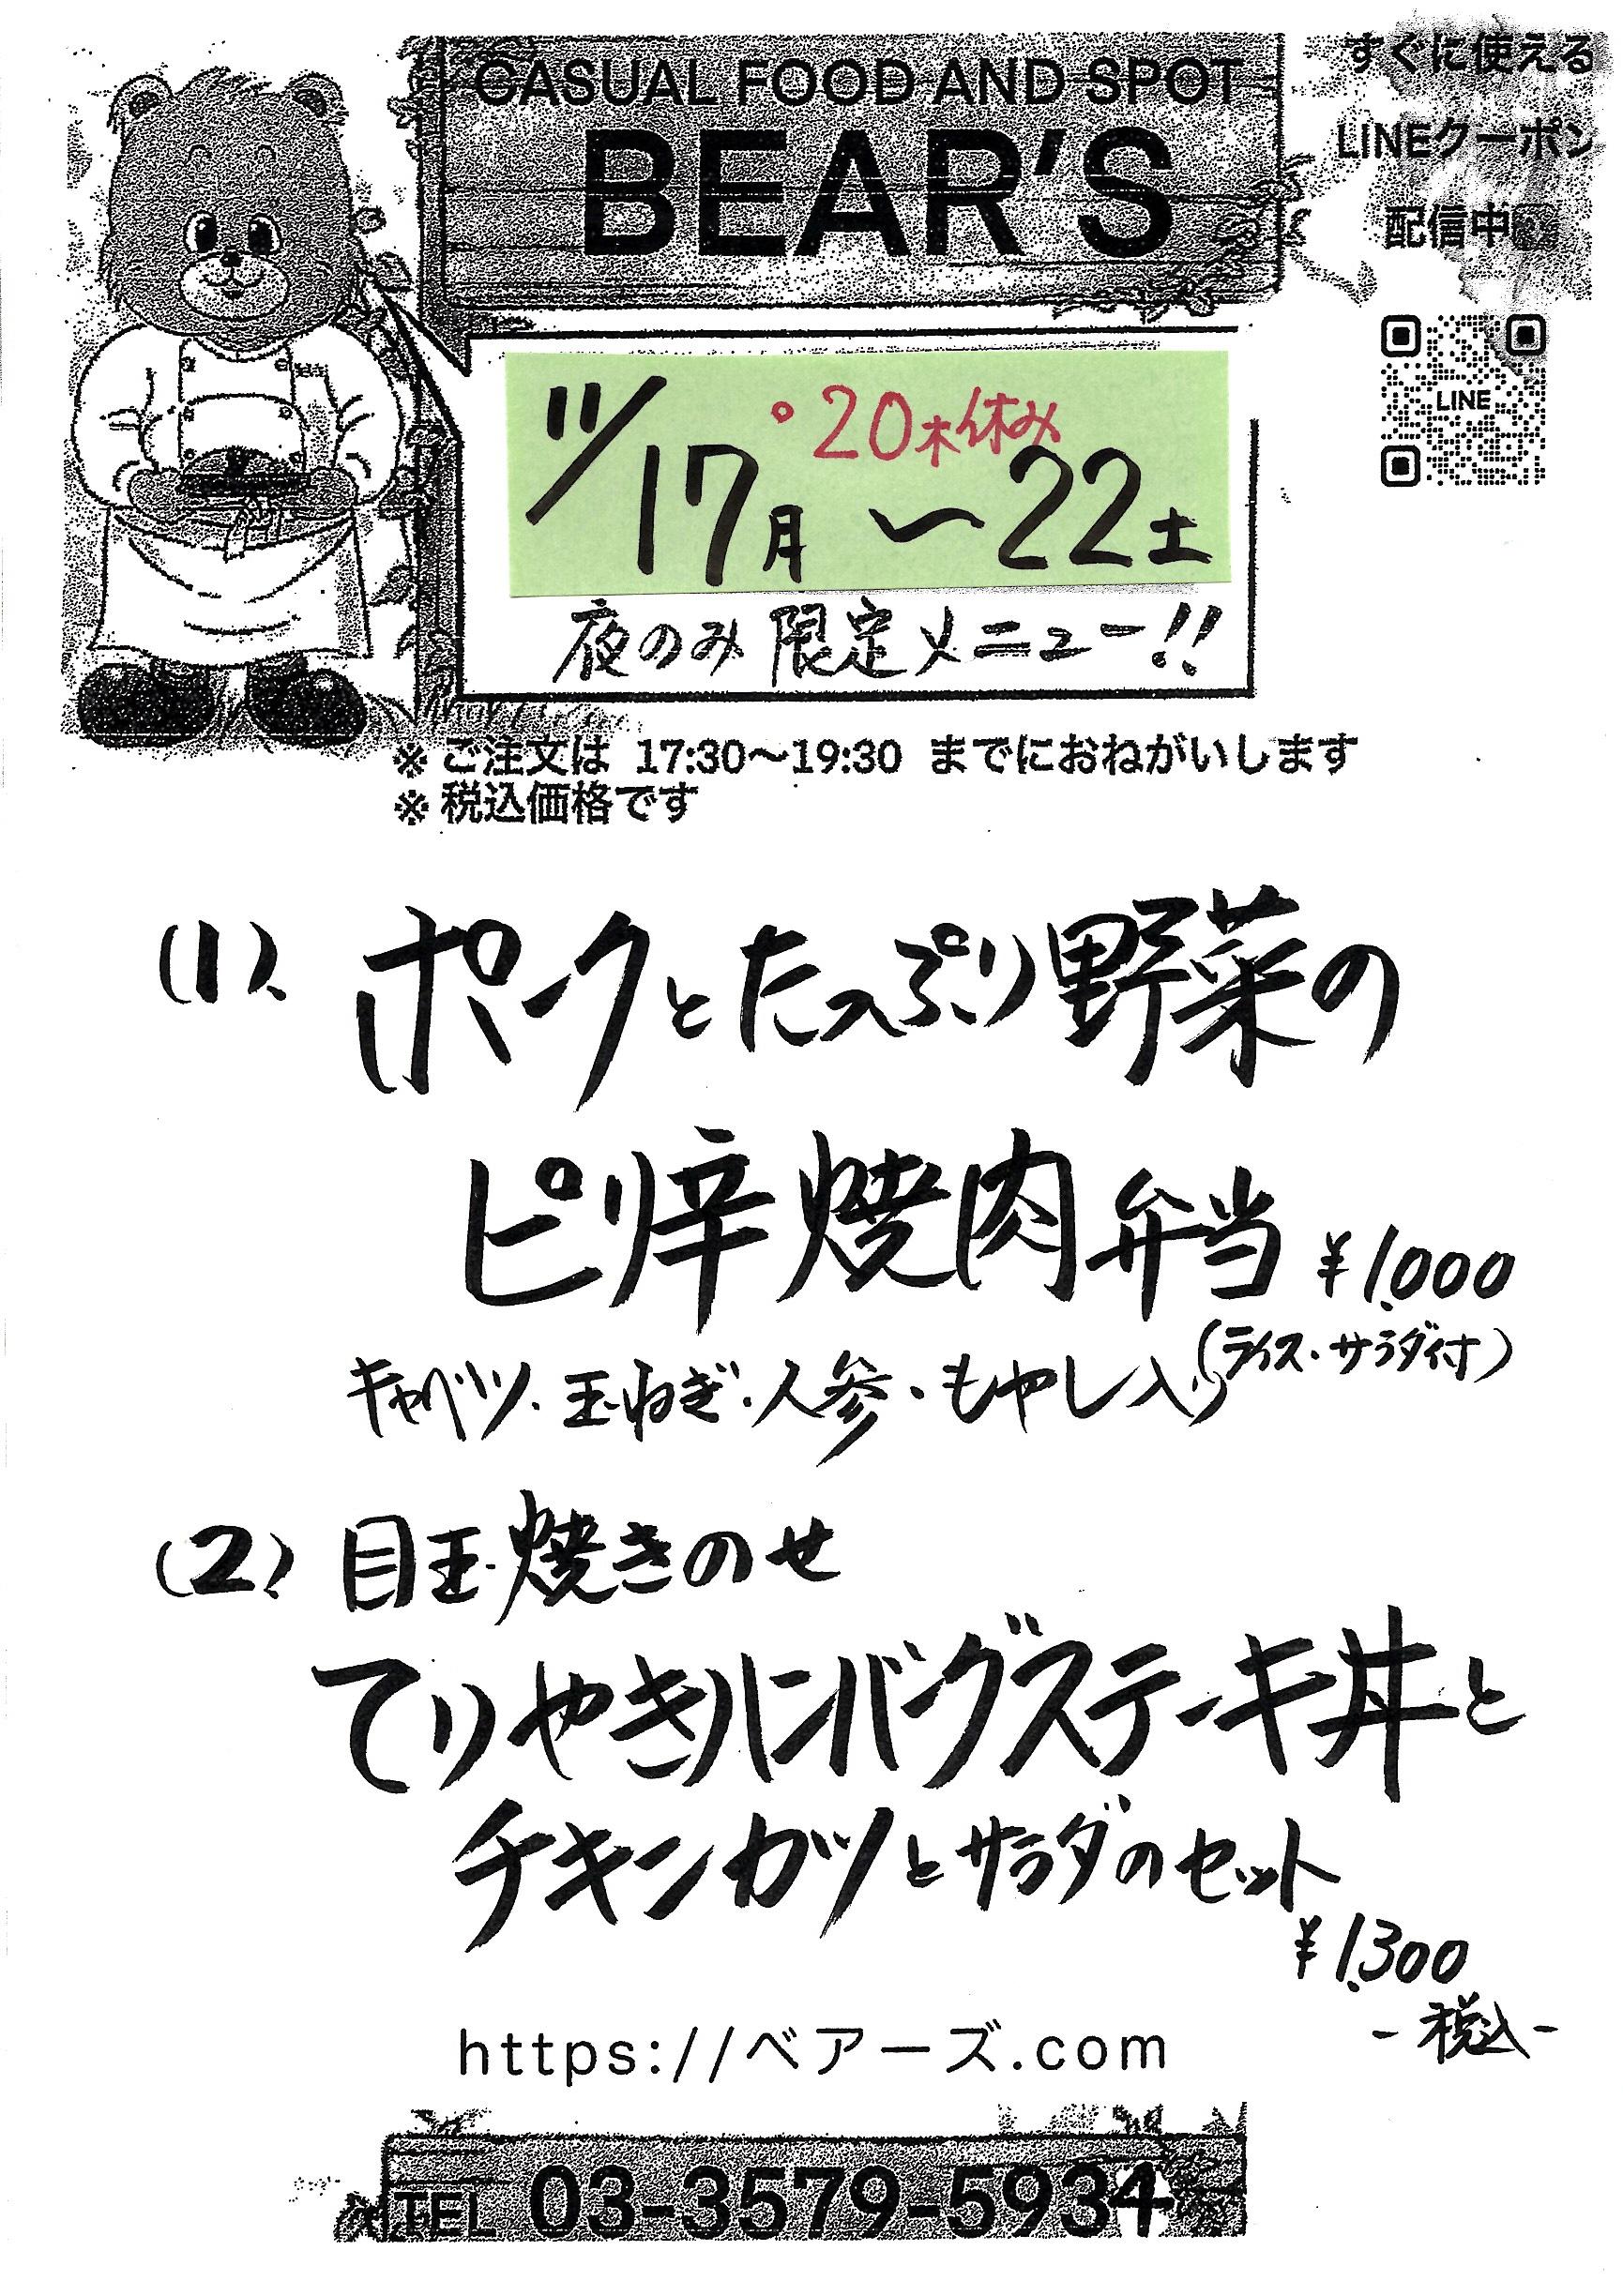 CASUAL FOOD AND SPOT
BEAR'S
すぐに使える
LINEクーポン
配信中
LINE
11/17月～22土
・20木休み
夜のみ限定メニュー!!
※ ご注文は 17:30～19:30 までにおねがいします
※ 税込価格です
(1) ポークとたっぷり野菜の
ピリ辛焼肉弁当 ¥1,000
(ライス・サラダ付)
キャベツ・玉ねぎ・人参・もやし入り
(2) 目玉焼きのせ
てりやきハンバーグステーキ丼と
チキンカツとサラダのセット
¥1,300
-税込-
https://ベアーズ.com
TEL 03-3579-5934